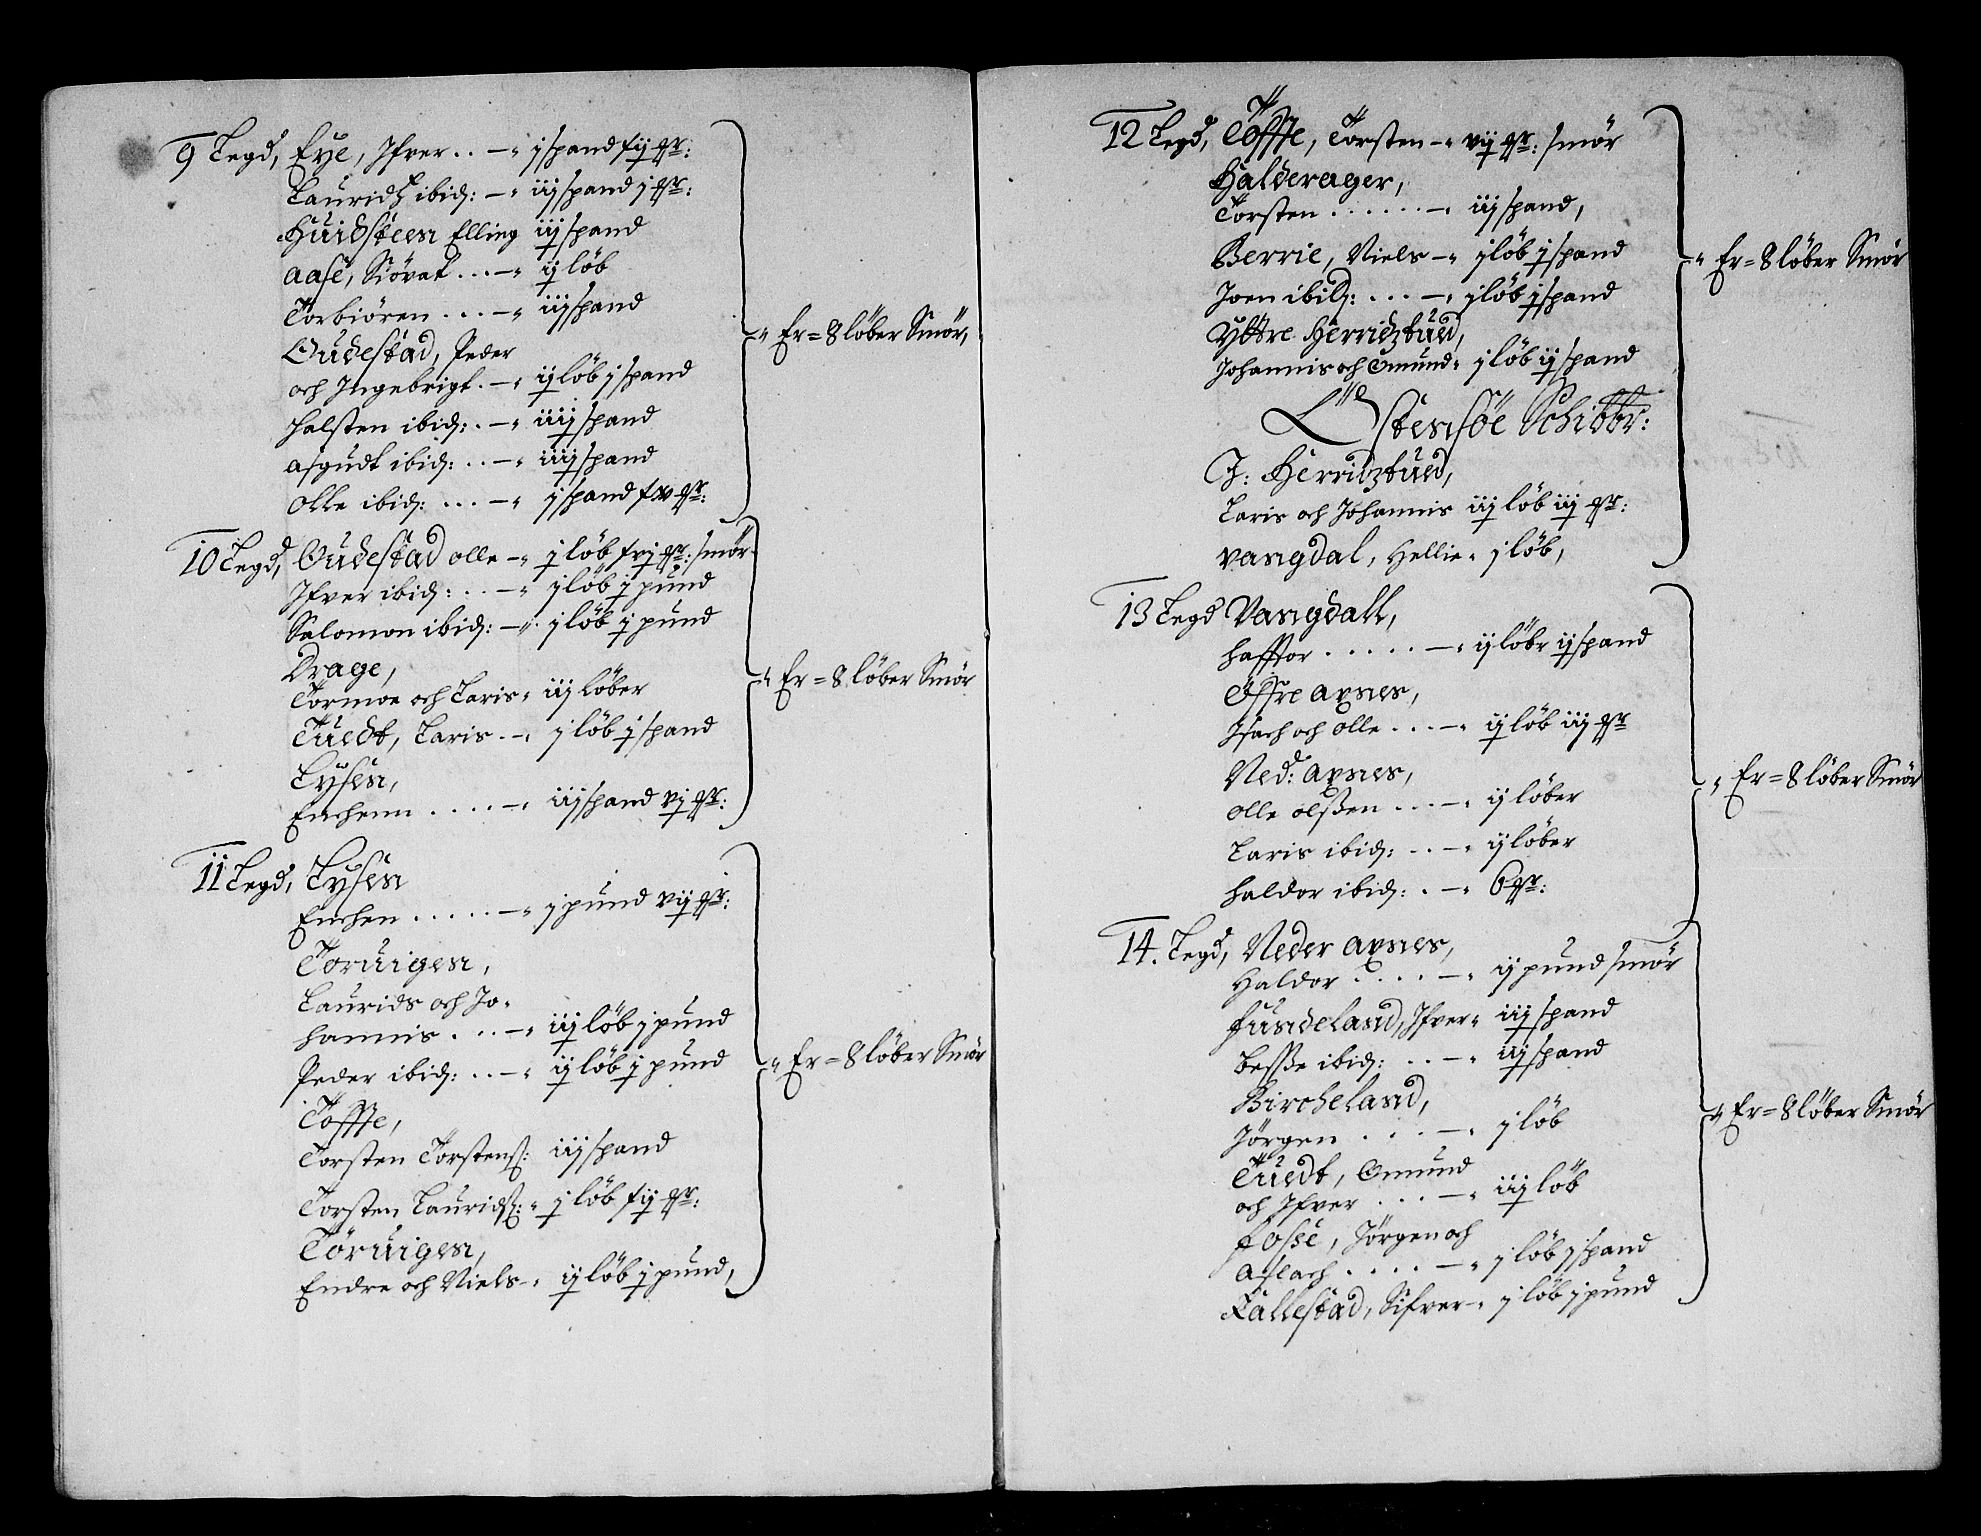 9 Legd, Eye, Ifver .. —" j spand f ij mr:
Lauridz ibid: —" iij spand j mr:
Huidsteen Elling iij spand
Aase, Siövat ... —" ij löb
Torbiören ... —" iij spand
Oudestad, Peder
och Ingebrigt. —" ij löb j spand
Halsten ibid: . —" iiij spand
Asgudt ibid: .. —" iiij spand
Olle ibid: ... —" j spand f xv mr:
Er = 8 löber Smör,
10 Legd, Oudestad olle —" j löb f vj mr: smör
Ifver ibid: .. —" j löb j pund
Salomon ibid: —" j löb j pund
Drage,
Tormoe och Laris " iij löber
Tuedt, Laris . —" j löb j spand
Lysen,
Enchenn .... —" iij spand vj mr:
Er = 8 löber Smör
11 Legd, Lysen
Enchen ..... —" j pund vij mr:
Toruigen,
Laurids och Jo-
hannis ... —" iij löb j pund
Peder ibid: .. —" ij löb j pund
Toffte,
Torsten Torstens: iij spand
Torsten Laurids: " j löb f ij mr:
Töruigen,
Endre och Niels —" ij löb j pund,
Er = 8 löber Smör
12 Legd, Töffte, Torsten —" vij mr: smör
Halderager,
Torsten ...... —" iij spand,
Berrie, Niels —" j löb j spand
Joen ibid: ... —" j löb j spand
Yttre Herridztued,
Johannis och Omund " j löb ij spand
Östensöe Schibbr:
I: Herridztued,
Laris och Johannis iij löb iij mr:
Vangdal, Hellie " j löb,
Er = 8 löber Smör
13 Legd Vangdall,
Hafftor ..... —" ij löbr ij spand
Öffre Axnes,
Isach och Olle ... —" ij löb iij mr
Ned: Axnes,
Olle Olßen ... —" ij löber
Laris ibid: .. —" ij löber
Haldor ibid: . —" 6 mr:
Er = 8 löber Smör
14. Legd, Neder Axnes,
Haldor .... —" ij pund smör
Fundeland, Ifver " iij spand
Besse ibid: .. —" iij spand
Bircheland,
Jörgen ... —" j löb
Tuedt, Omund
och Ifver ... —" iij löb
Fosse, Jörgen och
Aslach .... —" j löb j spand
Tallestad, Sifver —" j löb j pund
Er = 8 löber Smör